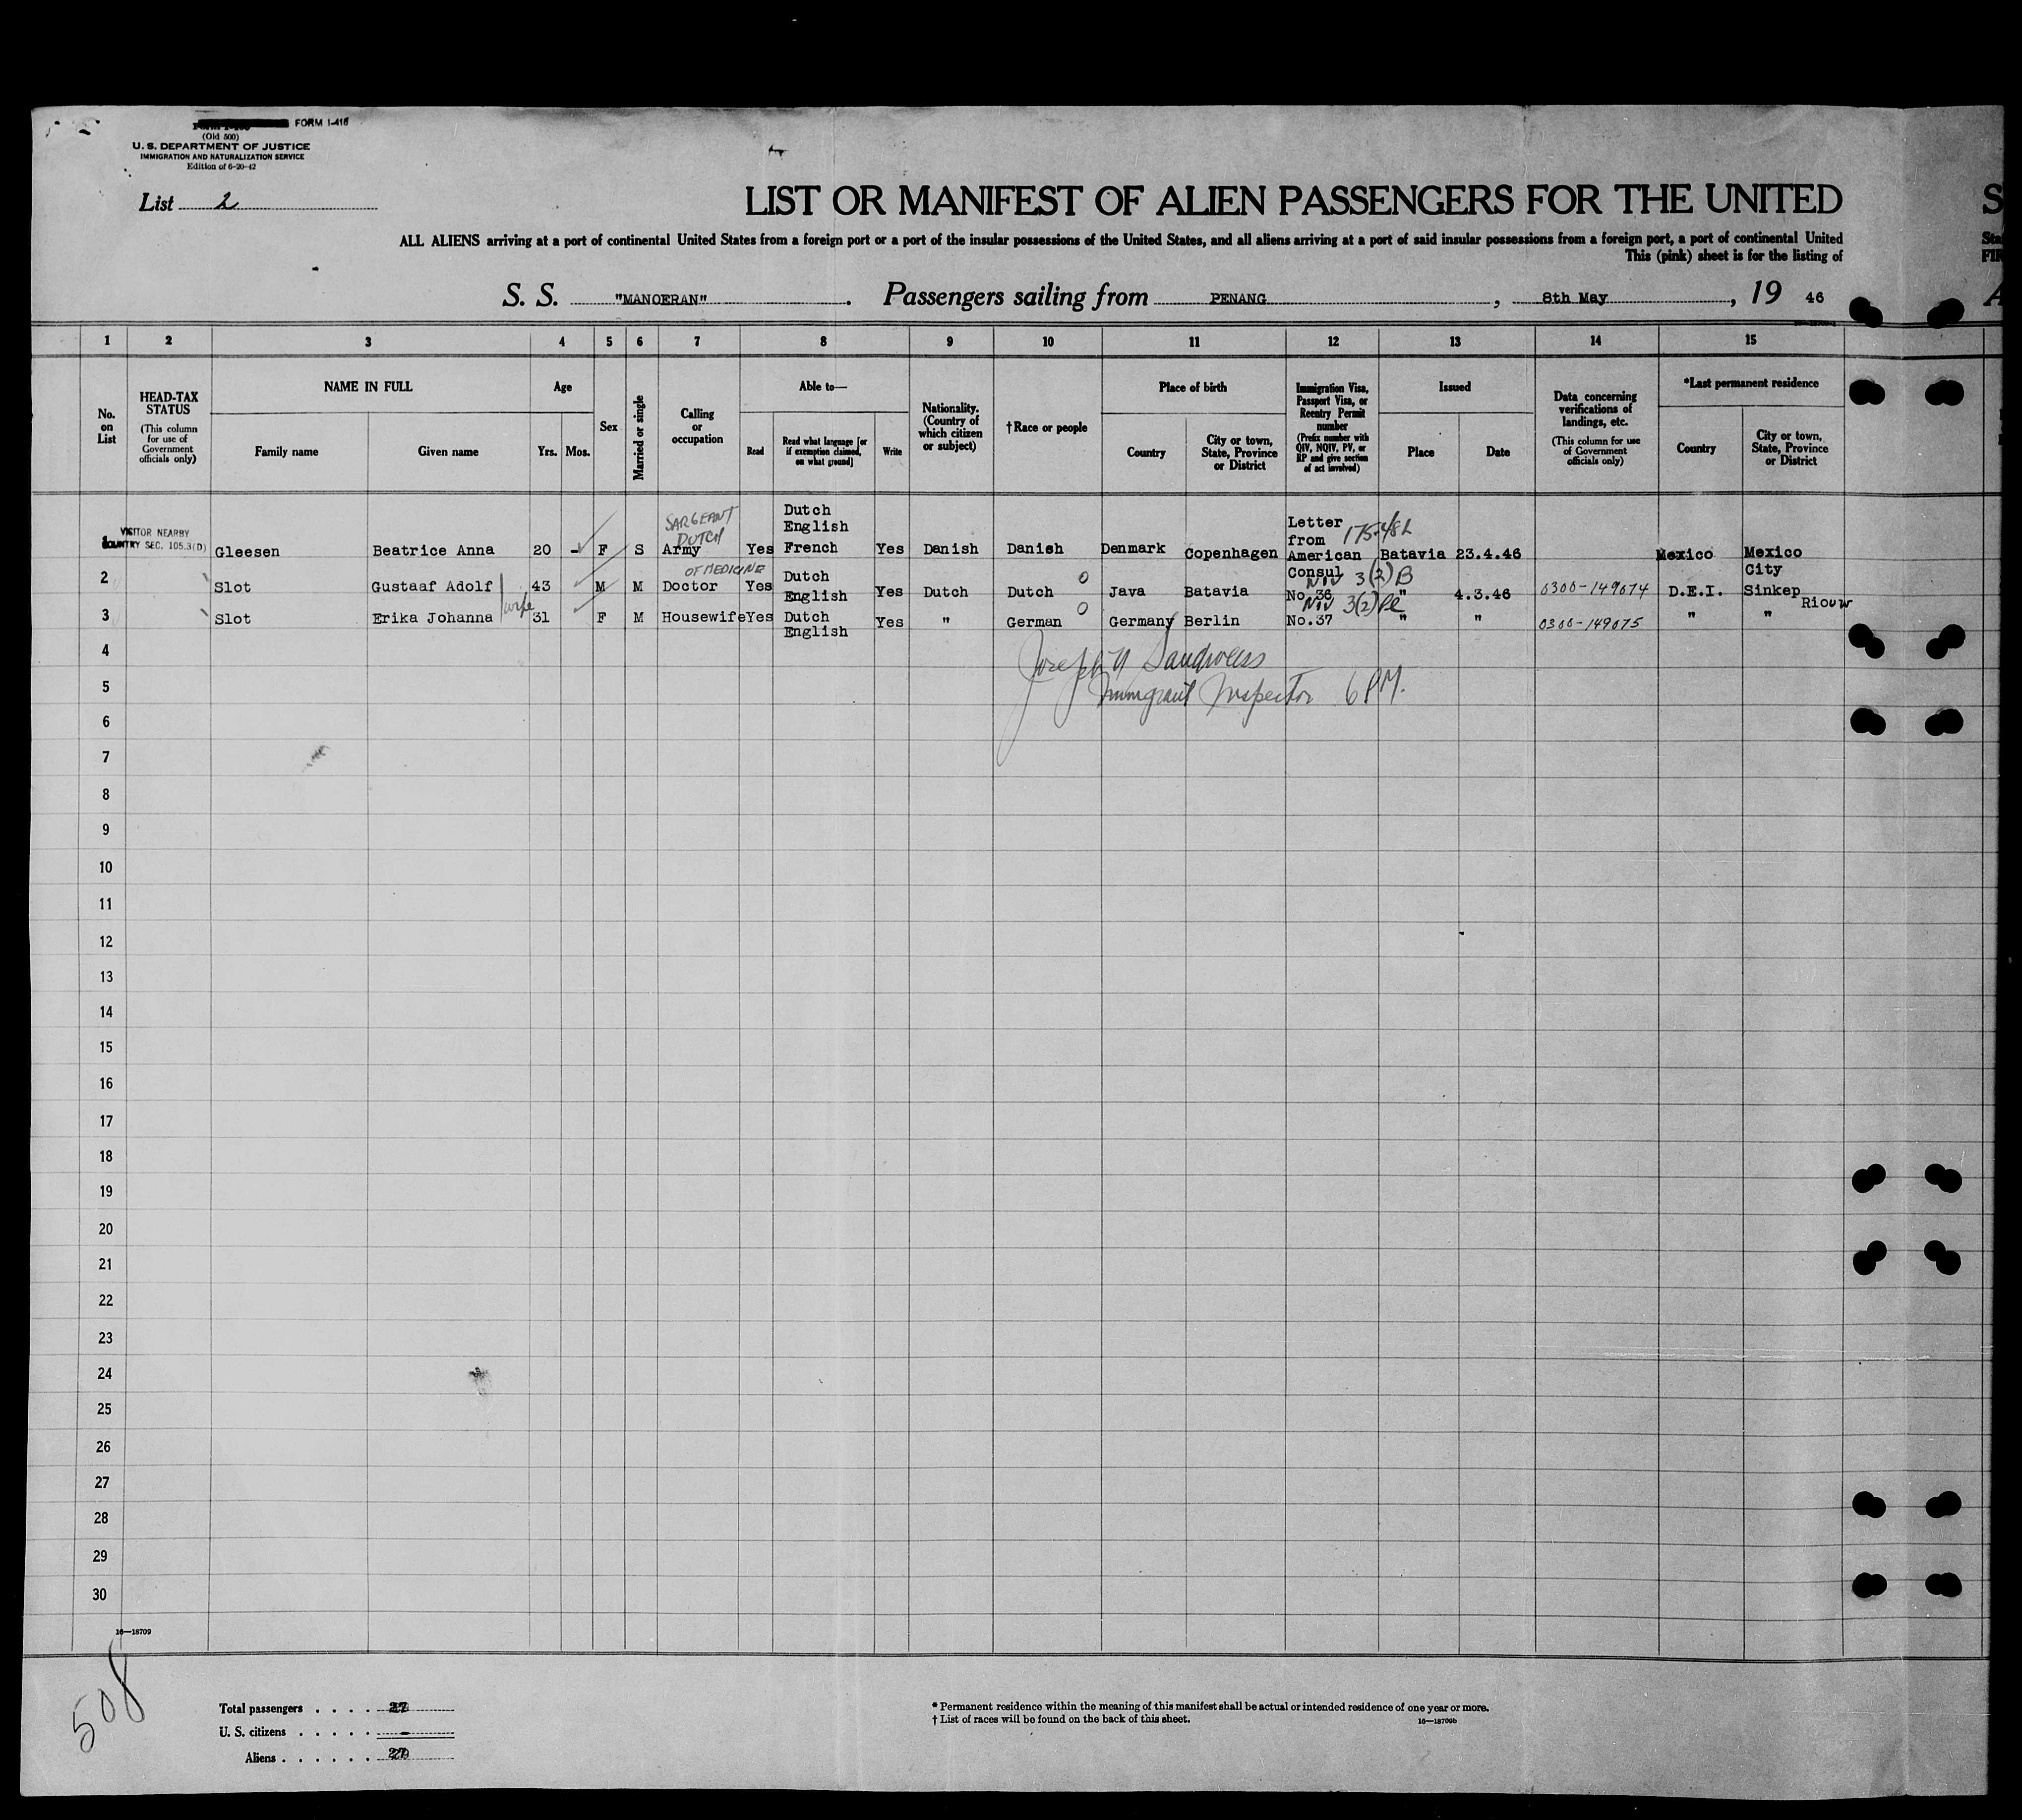 FORM I-416
(Old 500)
U. S. DEPARTMENT OF JUSTICE
IMMIGRATION AND NATURALIZATION SERVICE
Edition of 6-20-42
List 2
LIST OR MANIFEST OF ALIEN PASSENGERS FOR THE UNITED
ALL ALIENS arriving at a port of continental United States from a foreign port or a port of the insular possessions of the United States, and all aliens arriving at a port of said insular possessions from a foreign port, a port of continental United
This (pink) sheet is for the listing of
S. S. "MANOERAN". Passengers sailing from PENANG, 8th May, 19 46
1 2 3 4 5 6 7 8 9 10 11 12 13 14 15
No. on List
HEAD-TAX STATUS
(This column for use of Government officials only)
NAME IN FULL
Family name Given name
Age
Yrs. Mos.
Sex
Married or single
Calling or occupation
Able to—
Read
Read what language [or if exemption claimed, on what ground]
Write
Nationality. (Country of which citizen or subject)
†Race or people
Place of birth
Country
City or town, State, Province or District
Immigration Visa, Passport Visa, or Reentry Permit number
(Prefix number with QIV, NQIV, PV, or RP and give section of act involved)
Issued
Place Date
Data concerning verifications of landings, etc.
(This column for use of Government officials only)
*Last permanent residence
Country
City or town, State, Province or District
VISITOR NEARBY
COUNTRY SEC. 105.3(D)
1 Gleesen Beatrice Anna 20 - F S SARGEANT DUTCH Army Yes Dutch English French Yes Danish Danish Denmark Copenhagen Letter from American Consul Batavia 23.4.46 Mexico Mexico City
2 Slot Gustaaf Adolf 43 M M Doctor OF MEDICINE Yes Dutch English Yes Dutch Dutch Java Batavia No.36 NIV 3(2)B " 4.3.46 0300-149074 D.E.I. Sinkep Riouw
3 Slot Erika Johanna wife 31 F M Housewife Yes Dutch English Yes " German Germany Berlin No.37 NIV 3(2) " " 0300-149075 " "
4
Immigrant Inspector 6 PM.
5
6
7
8
9
10
11
12
13
14
15
16
17
18
19
20
21
22
23
24
25
26
27
28
29
30
16—18709
508
Total passengers . . . .
U. S. citizens . . . . . -
Aliens . . . . . .
* Permanent residence within the meaning of this manifest shall be actual or intended residence of one year or more.
† List of races will be found on the back of this sheet.
16—18709b